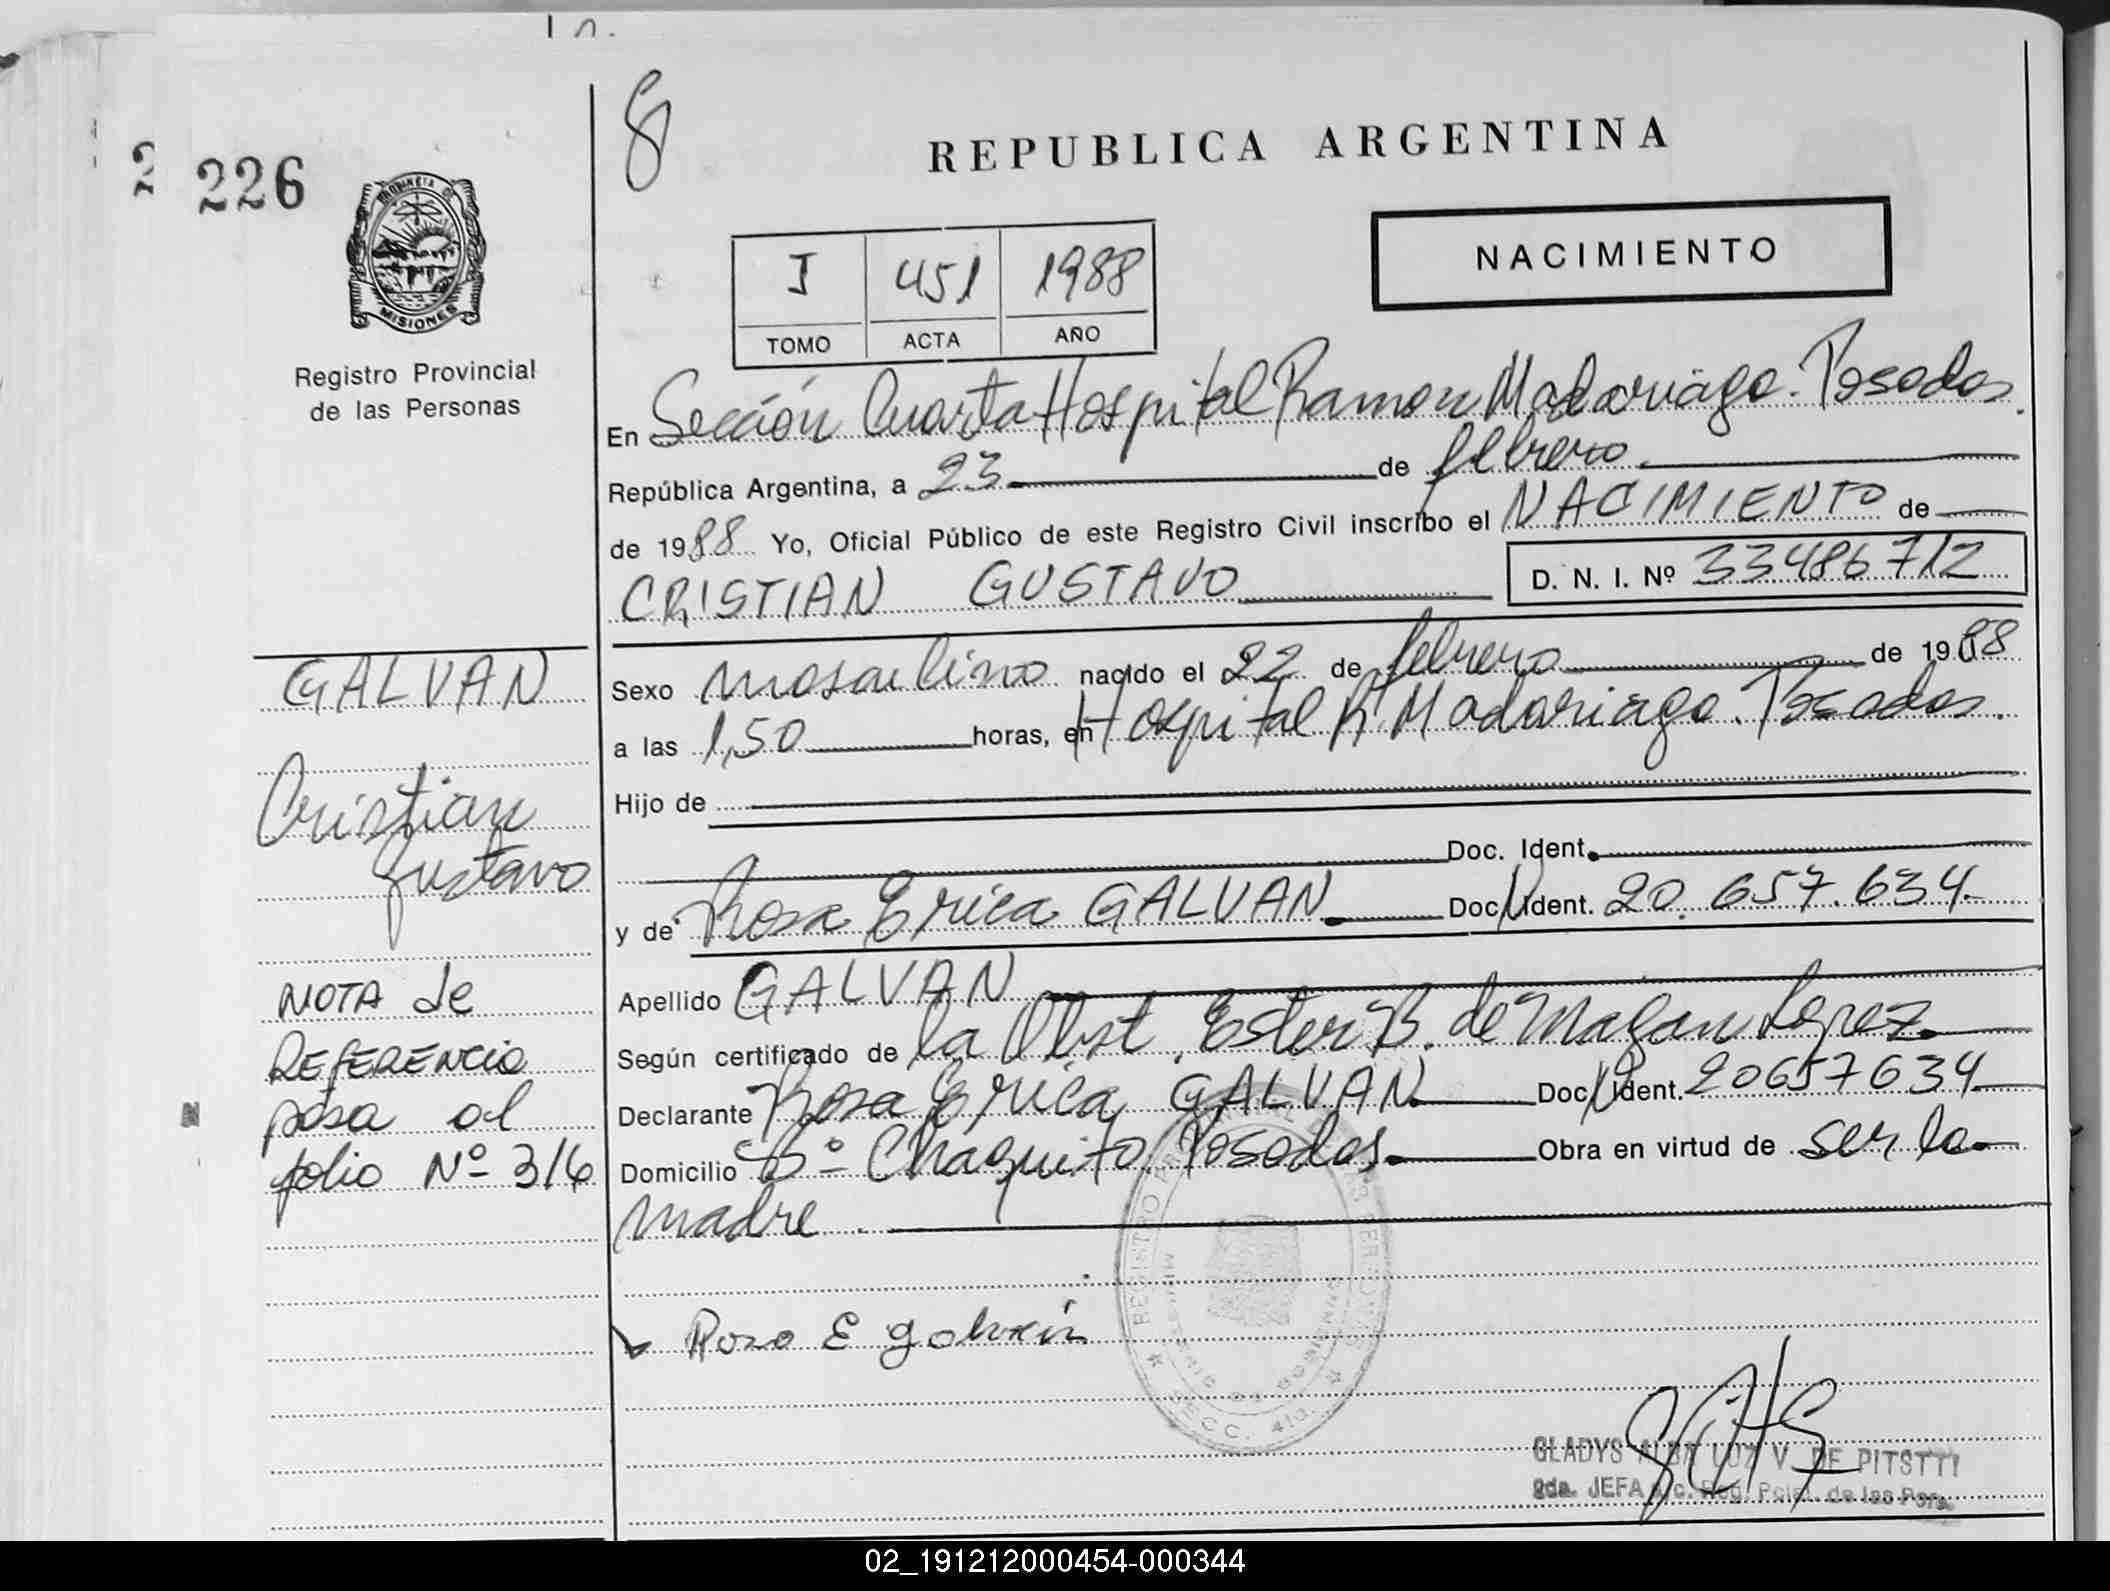 226
PROVINCIA DE
MISIONES
Registro Provincial
de las Personas
GALVAN
Cristian
Gustavo
NOTA de
REFERENCIA
pasa al
folio Nº 316
8
REPUBLICA ARGENTINA
NACIMIENTO
I 451 1988
TOMO ACTA AÑO
En Sección Cuarta Hospital Ramon Madariaga. Posadas.
República Argentina, a 23 de febrero
de 1988 Yo, Oficial Público de este Registro Civil inscribo el NACIMIENTO de
CRISTIAN GUSTAVO D. N. I. Nº 33486712
Sexo masculino nacido el 22 de febrero de 1988
a las 1,50 horas, en Hospital R. Madariaga. Posadas.
Hijo de
Doc. Ident.
y de Rosa Erica GALVAN Doc. Ident. 20.657.634
Apellido GALVAN
Según certificado de la Obst. Ester B. de Magan Lopez
Declarante Rosa Erica GALVAN Doc. Ident. 20657634
Domicilio Bº Chaquito Posadas. Obra en virtud de ser la
madre.
Rosa E galván
SECC. 4ta.
GLADYS ALBA LUZ V. DE PITSTTI
2da. JEFA a/c. Reg. Pcial. de las Pers.
02_191212000454-000344